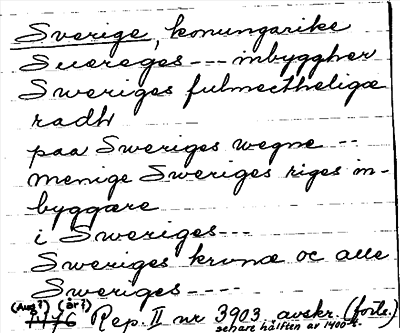 Sverige, konungarike
Suereges --- inbyggher
Sweriges fulmectheligæ
radh
paa Sweriges wegne --
menige Sweriges riges in-
byggære
i Sweriges---
Sweriges krunæ oc alle
Sweriges ----
(Aug?) (år?)
1476 Rep. II nr 3903 avskr. (forts.)
senare hälften av 1400-t.